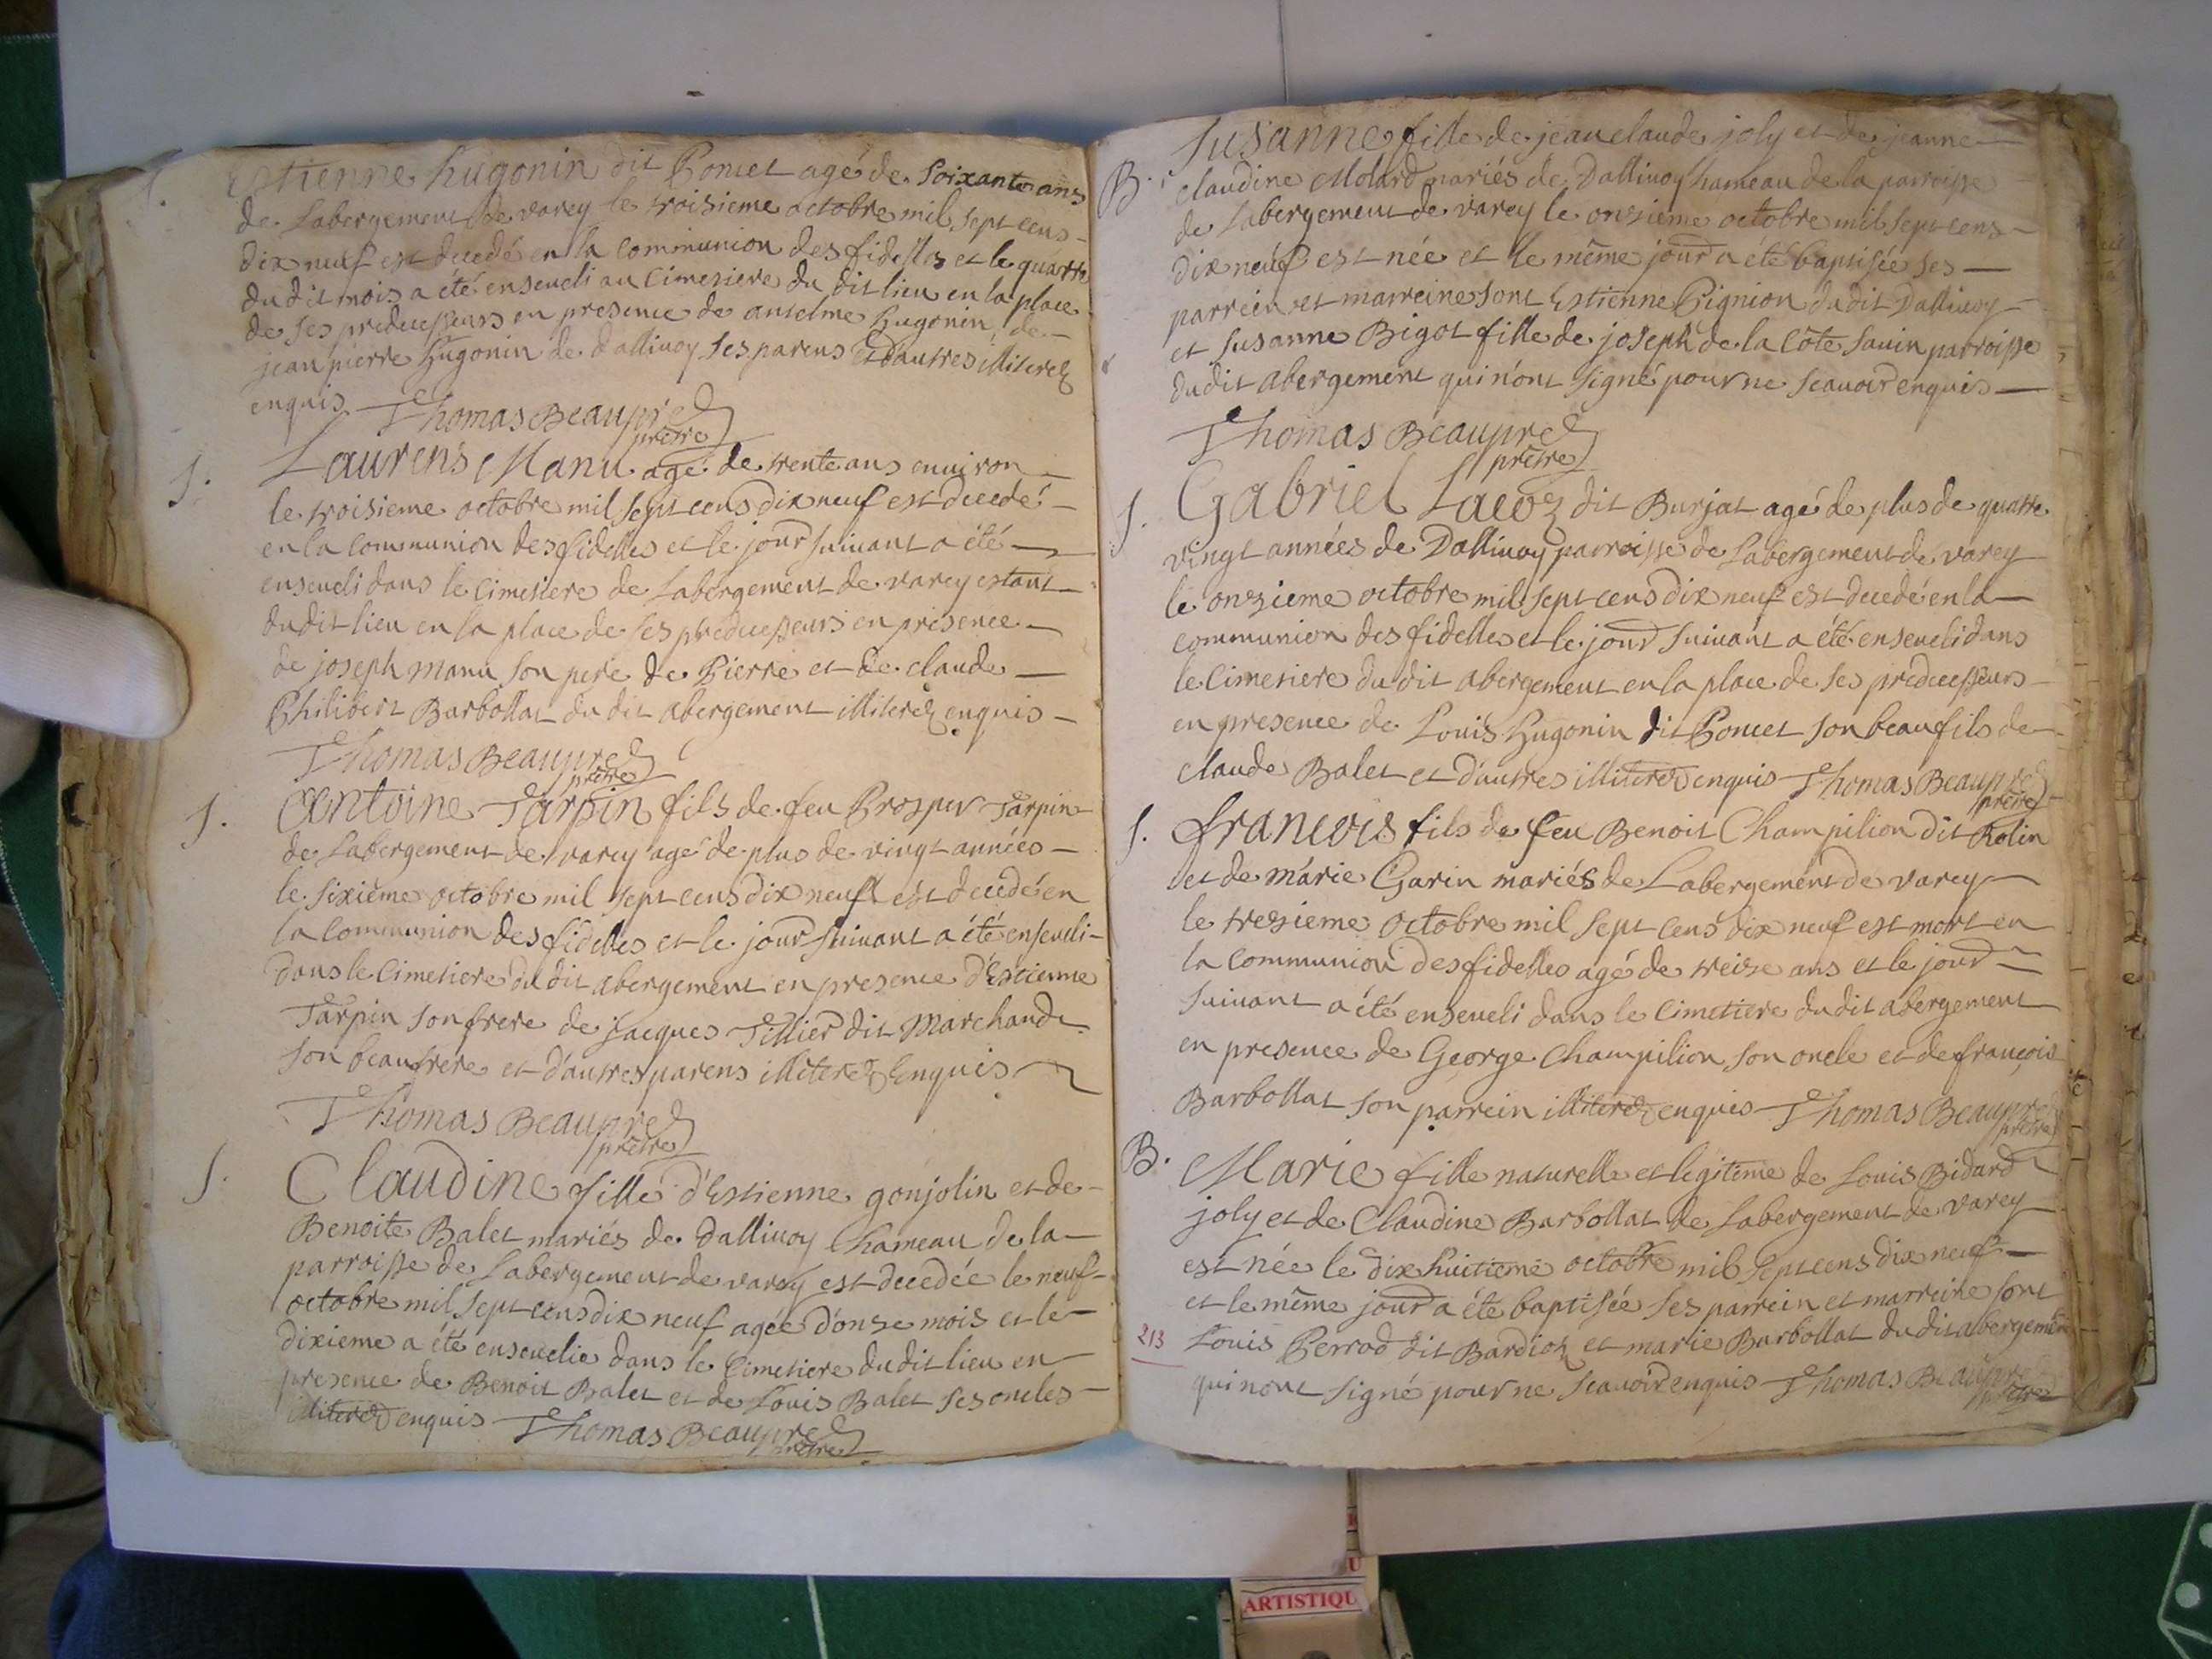 S.
Estienne hugonin dit Poncet agé de soixante ans
de Labergement de varey le troisieme octobre mil sept cens
dix neuf est decedé en la communion des fidelles et le quatre
du dit mois a été enseveli au cimetiere du dit lieu en la place
de ses predecesseurs en presence de anselme hugonin, de
jean pierre hugonin de dallivoy ses parens et d'autres illiterez
enquis Thomas Beaupred
prêtre
S.
Laurens Manu agé de trente ans environ
le troisieme octobre mil sept cens dix neuf est decedé
en la communion des fidelles et le jour suivant a été
enseveli dans le cimetiere de Labergement de varey estant
du dit lieu en la place de ses predecesseurs en presence
de joseph manu son pere de Pierre et de claude
Philibert Barbollat du dit abergement illiterez enquis
Thomas Beaupred
prêtre
S.
Antoine Tarpin fils de feu Prosper Tarpin
de Labergement de varey agé de plus de vingt années
le sixième octobre mil sept cens dix neuf est decedé en
la communion des fidelles et le jour suivant a été enseveli
dans le cimetiere du dit abergement en presence d'Estienne
Tarpin son frere de jacques Tillier dit Marchand
son beaufrere et d'autres parens illiterez Enquis
Thomas Beaupred
prêtre
S.
Claudine fille d'Estienne gonjolin et de
Benoite Balet mariés de Dallivoy hameau de la
parroisse de Labergement de varey est decedée le neuf
octobre mil sept cens dix neuf agée d'onze mois et le
dixieme a été ensevelie dans le cimetiere du dit lieu en
presence de Benoit Balet et de Louis Balet ses oncles
illiterez enquis Thomas Beaupred
prêtre
B.
Susanne fille de jean claude joly et de jeanne
claudine Molard mariés de Dallivoy hameau de la parroisse
de Labergement de varey le onzieme octobre mil sept cens
dix neuf est née et le même jour a été baptisée ses
parrein et marreine sont Estienne Pignion du dit Dallivoy
et susanne Bigot fille de joseph de la Côte savin parroisse
du dit abergement qui n'ont signé pour ne scavoir enquis
Thomas Beaupred
prêtre
S.
Gabriel Lacoz dit Burjat agé de plus de quatre
vingt années de Dallivoy parroisse de Labergement de varey
le onzieme octobre mil sept cens dix neuf est decedé en la
communion des fidelles et le jour suivant a été enseveli dans
le cimetiere du dit abergement en la place de ses predecesseurs
en presence de Louis hugonin dit Poncet son beaufils de
claude Balet et d'autres illiterez enquis Thomas Beaupred
prêtre
S.
francois fils de feu Benoit Champilion dit Rolin
et de marie Garin mariés de Labergement de varey
le tresieme octobre mil sept cens dix neuf est mort en
la communion des fidelles agé de treize ans et le jour
suivant a été enseveli dans le cimetiere du dit abergement
en presence de George Champilion son oncle et de françois
Barbollat son parrein illiterez enquis Thomas Beaupred
prêtre
B.
Marie fille naturelle et legitime de Louis Bidard
joly et de Claudine Barbollat de Labergement de varey
est née le dix huitieme octobre mil sept cens dix neuf
et le même jour a été baptisée ses parrein et marreine sont
213
Louis Perrod dit Bardioz et marie Barbollat du dit abergement
qui n'ont signé pour ne scavoir enquis Thomas Beaupred
prêtre
ARTISTIQU